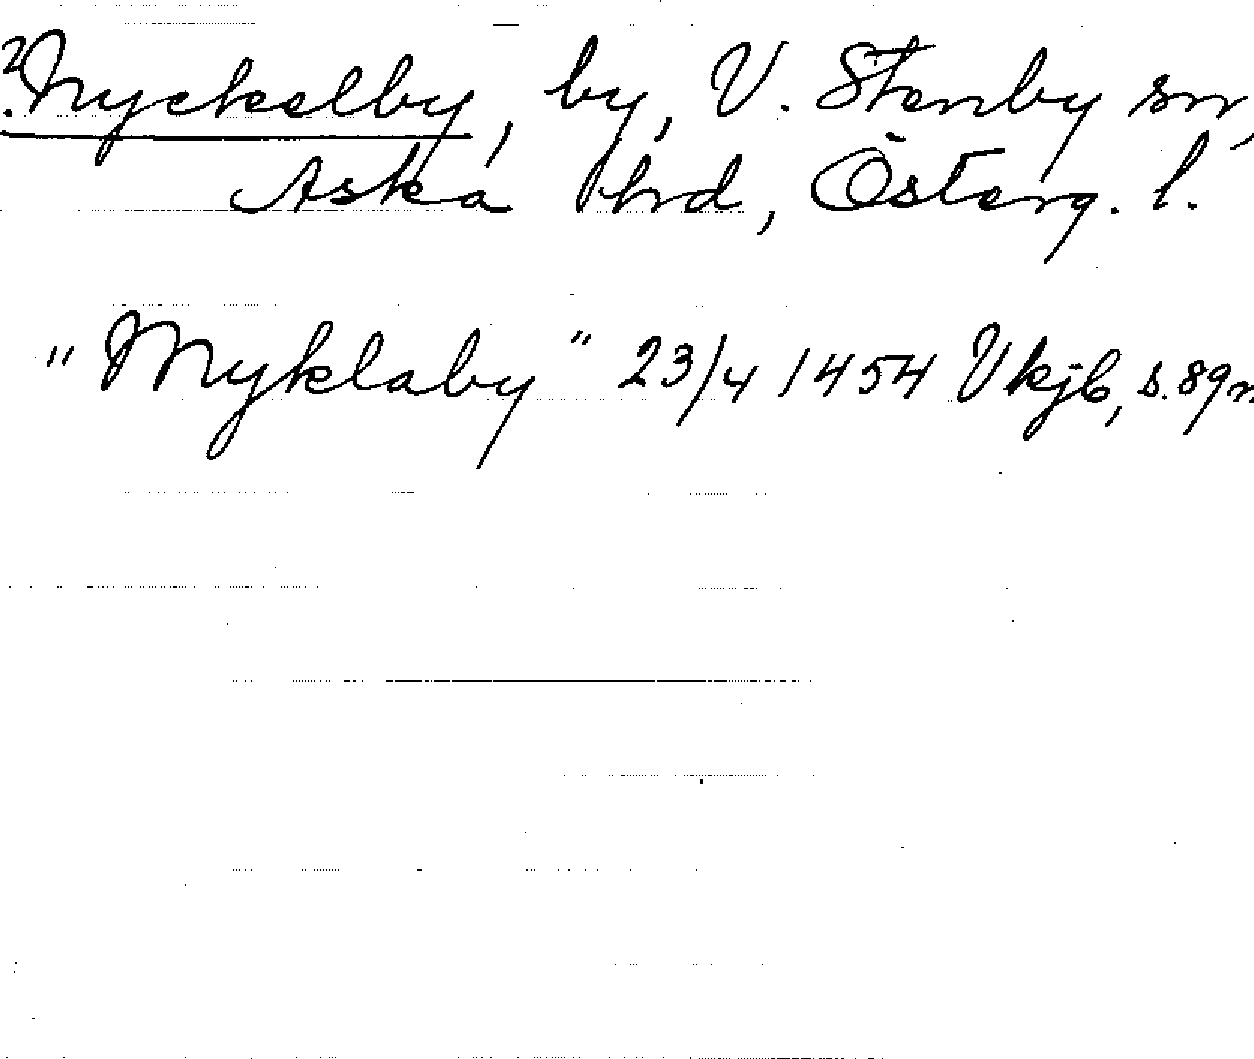 ? Nyckelby, by, V. Stenby sn,
Aska hrd, Österg. l.
"Myklaby" 23/4 1454 Vkjb, s. 89n